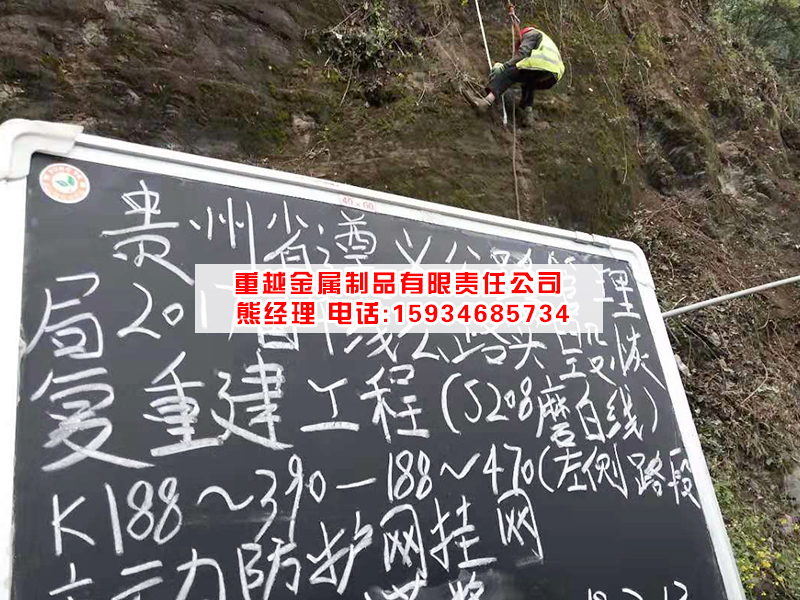 40×60
贵州省遵义公路管理
局2017
重越金属制品有限责任公司
熊经理 电话:15934685734
复重建工程(S208磨白线)
K188~390—188~470(左侧路段
防护网挂网